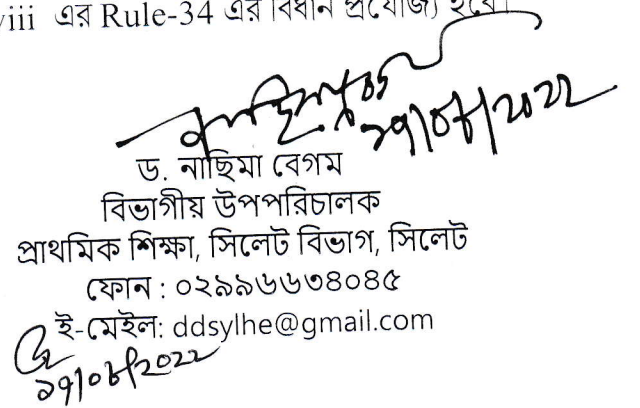 viii এর Rule-34 এর বিধান প্রযোজ্য হবে।
২৭/০৬/২০২২
ড. নাছিমা বেগম
বিভাগীয় উপপরিচালক
প্রাথমিক শিক্ষা, সিলেট বিভাগ, সিলেট
ফোন : ০২৯৯৬৬৩৪০৪৫
ই-মেইল: ddsylhe@gmail.com